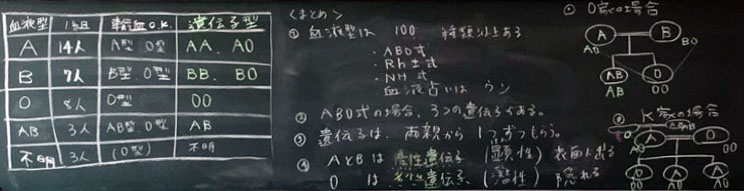 血液型 1組 輸血O.K. 遺伝子型
A 14人 A型、O型 AA、AO
B 7人 B型、O型 BB、BO
O 8人 O型 OO
AB 3人 AB型、O型 AB
不明 3人 (O型) 不明
<まとめ>
① 血液型は 100 種類以上ある
・ABO式
・Rh±式
・NH式
血液占いは ウソ
② ABO式の場合、3つの遺伝子がある。
③ 遺伝子は、両親から1つずつもらう。
④ AとBは 優性遺伝子 (顕性) 表面に出る
Oは 劣性遺伝子 (潜性) 隠れる
① O家の場合
A B
AO BO
AB O
AB OO
② K家の場合
A O
OO
A A O
AO AO OO